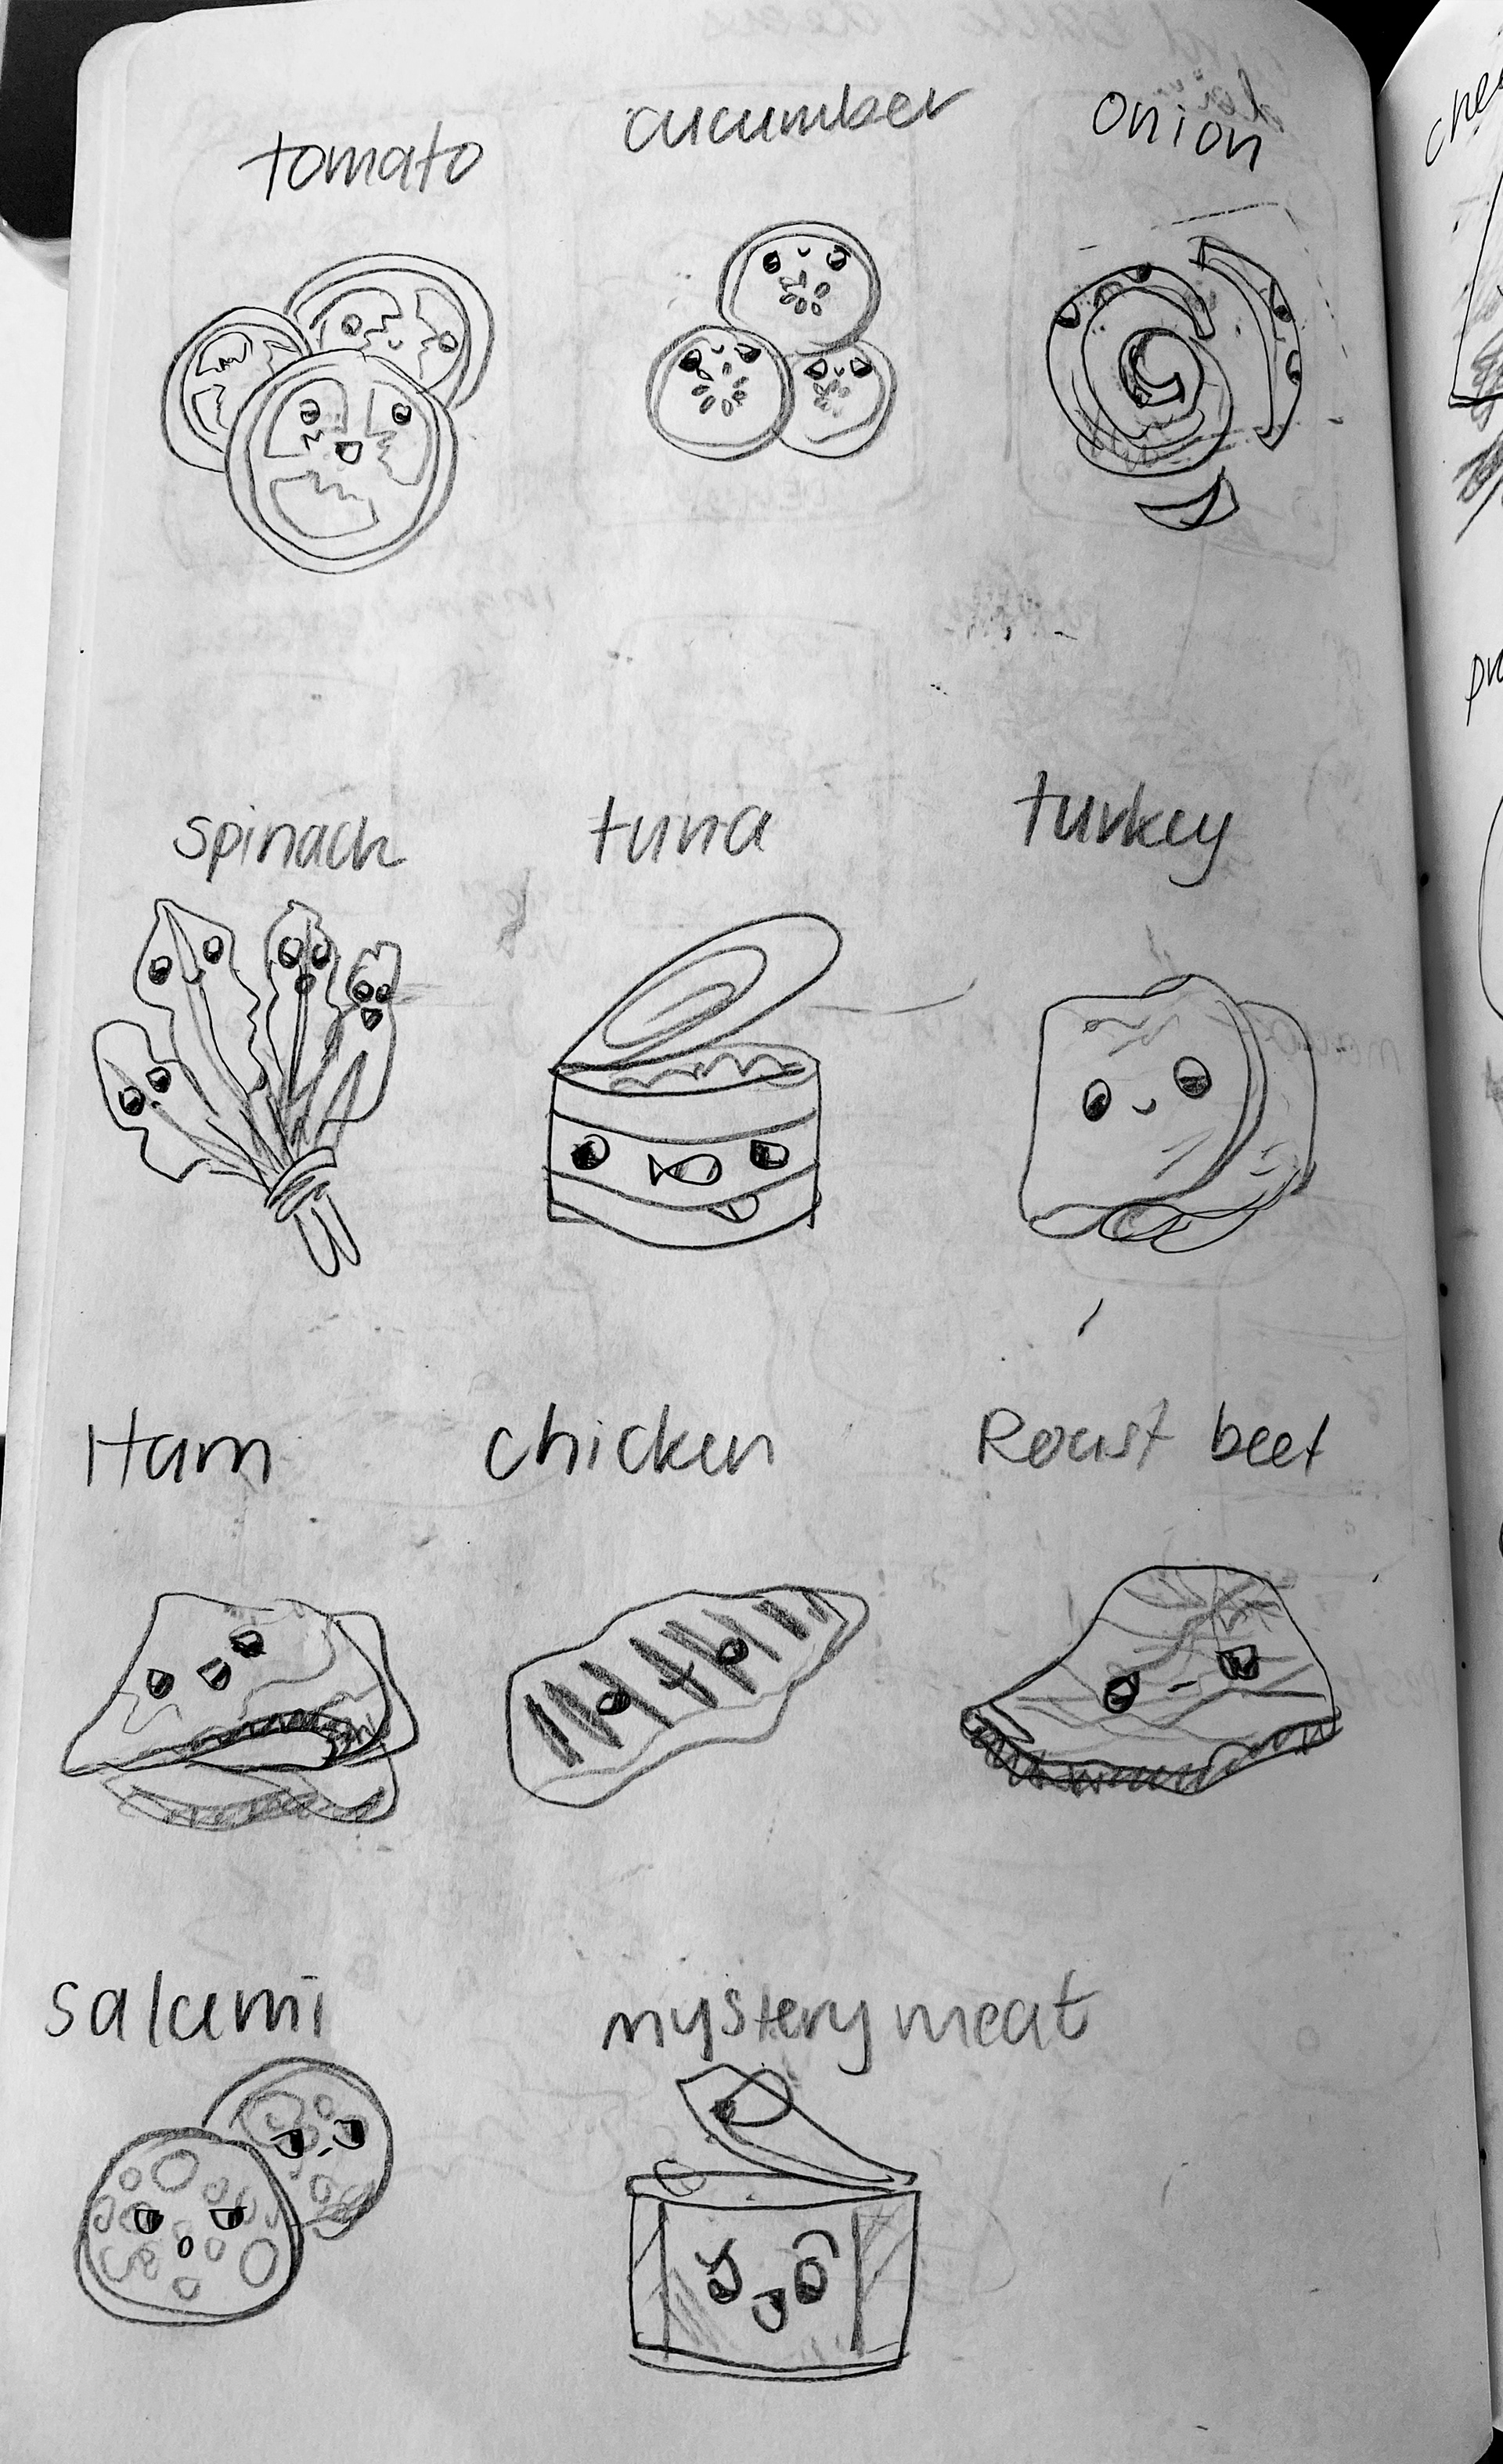 tomato cucumber onion
spinach tuna turkey
Ham chicken Roast beef
salami mystery meat